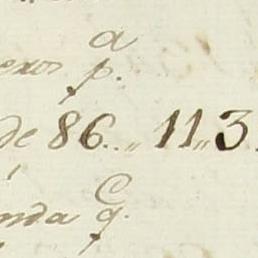 a
exos p.
de 86.,, 11,, 3.
C
enda q.